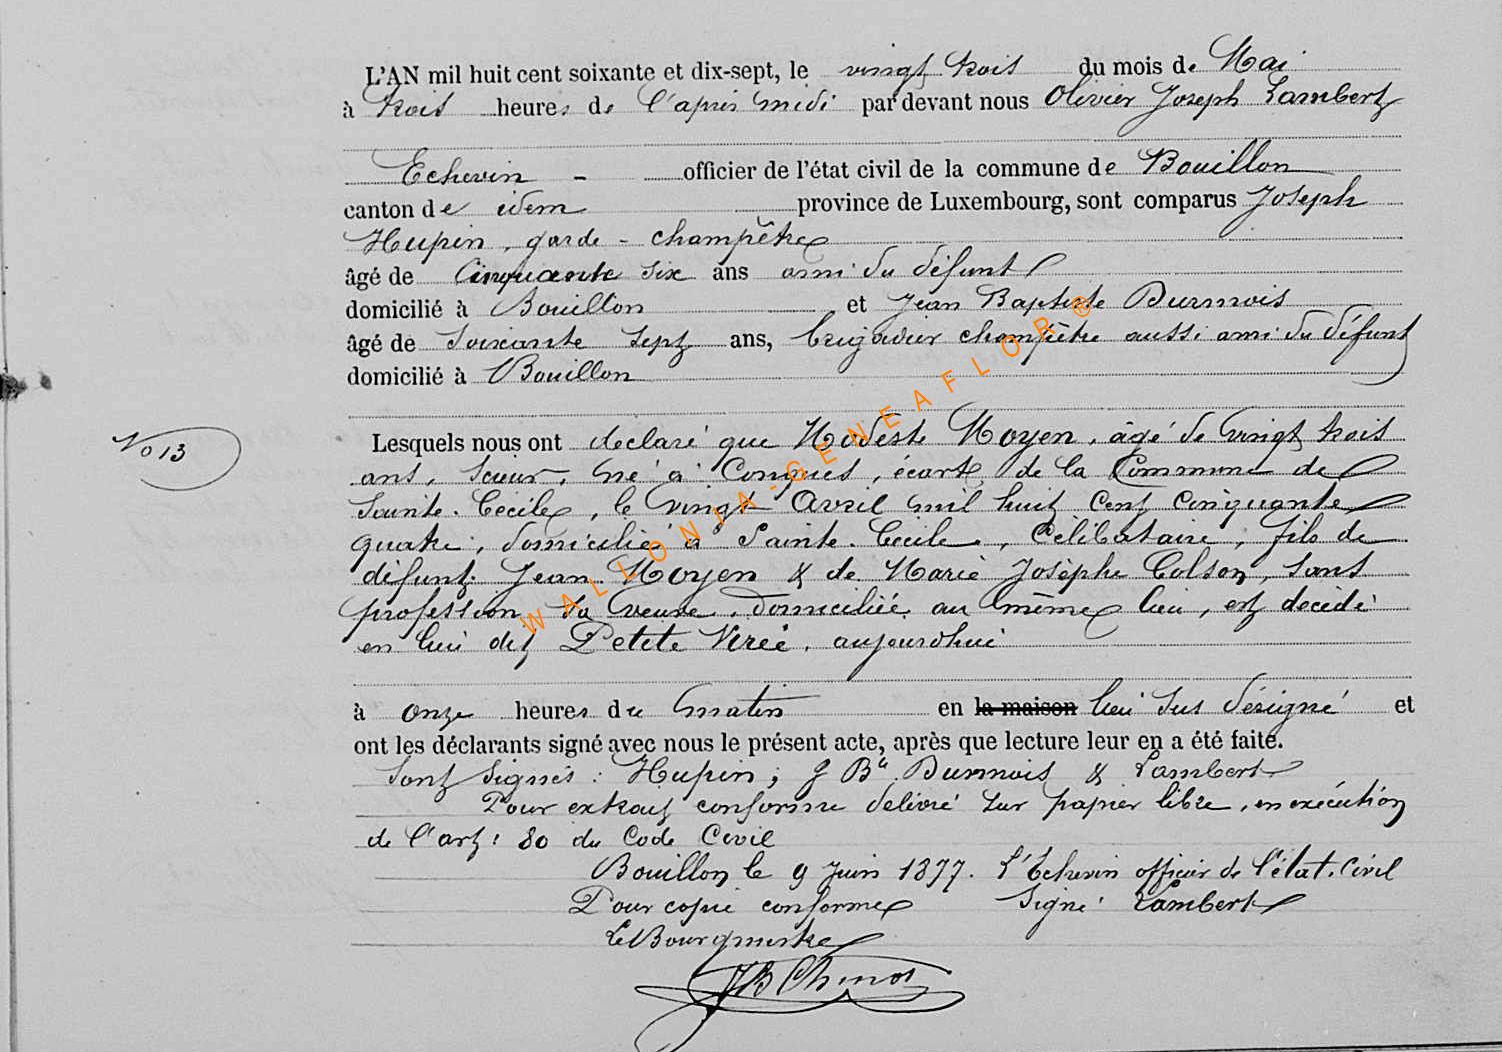 L'AN mil huit cent soixante et dix-sept, le vingt trois du mois de Mai
à trois heures de l'après midi par devant nous Olivier Joseph Lambert
Echevin - officier de l'état civil de la commune de Bouillon
canton de idem province de Luxembourg, sont comparus Joseph
Hupin, garde-champêtre
âgé de Cinquante six ans ami du défunt
domicilié à Bouillon et Jean Baptiste Durmois
âgé de Soixante sept ans, brigadier champêtre aussi ami du défunt
domicilié à Bouillon
No 13
Lesquels nous ont declaré que Modeste Moyen, âgé de vingt trois
ans, Scieur, né à Conques, écart de la Commune de
Sainte-Cécile, le vingt Avril mil huit Cent Cinquante
quatre, domicilié à Sainte-Cécile, Célibataire, fils de
défunt Jean Moyen & de Marie Josèphe Colson, sans
profession, sa veuve, domiciliée au même lieu, est décédé
en lieu dit Petite Virée, aujourdhui
à onze heures du matin en la maison lieu sus désigné et
ont les déclarants signé avec nous le présent acte, après que lecture leur en a été faite.
Sont signés : Hupin ; J Bte Durmois & Lambert
Pour extrait conforme délivré sur papier libre, en exécution
de l'art : 80 du Code Civil
Bouillon le 9 Juin 1877. L'Echevin officier de l'état-Civil
Pour copie conforme Signé Lambert
Le Bourgmestre
WALLONIA-GENEAFLOR®